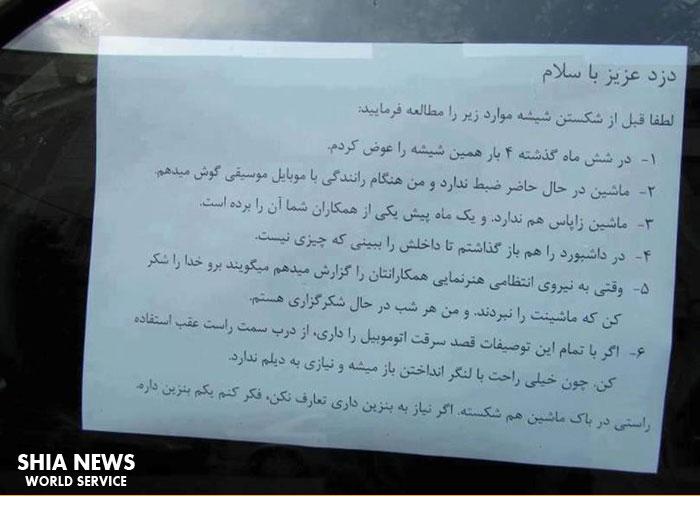 دزد عزیز با سلام
لطفا قبل از شکستن شیشه موارد زیر را مطالعه فرمایید:
۱- در شش ماه گذشته ۴ بار همین شیشه را عوض کردم.
۲- ماشین در حال حاضر ضبط ندارد و من هنگام رانندگی با موبایل موسیقی گوش میدهم.
۳- ماشین زاپاس هم ندارد. و یک ماه پیش یکی از همکاران شما آن را برده است.
۴- در داشبورد را هم باز گذاشتم تا داخلش را ببینی که چیزی نیست.
۵- وقتی به نیروی انتظامی هنرنمایی همکارانتان را گزارش میدهم میگویند برو خدا را شکر
کن که ماشینت را نبردند. و من هر شب در حال شکرگزاری هستم.
۶- اگر با تمام این توصیفات قصد سرقت اتوموبیل را داری، از درب سمت راست عقب استفاده
کن. چون خیلی راحت با لنگر انداختن باز میشه و نیازی به دیلم ندارد.
راستی در باک ماشین هم شکسته. اگر نیاز به بنزین داری تعارف نکن، فکر کنم یکم بنزین داره.
SHIA NEWS
WORLD SERVICE